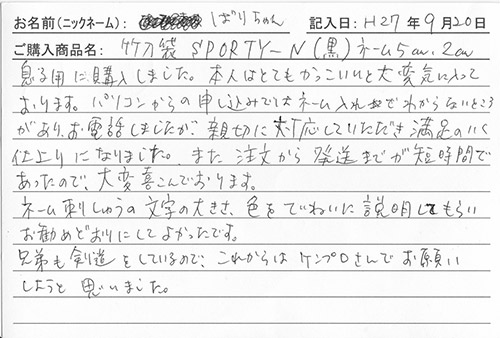 お名前(ニックネーム): しばりちゃん 記入日: H27年9月20日
ご購入商品名: 竹刀袋 SPORTY-N (黒) ネーム5cm、2cm
息子用に購入しました。本人はとてもかっこいいと大変気に入って
おります。パソコンからの申し込みではネーム入れ等でわからないところ
があり、お電話しましたが、親切に対応していただき満足のいく
仕上りになりました。また、注文から発送までが短時間で
あったので、大変喜こんでおります。
ネーム刺しゅうの文字の大きさ、色をていねいに説明してもらい
お勧めどおりにしてよかったです。
兄弟も剣道をしているので、これからはケンプロさんでお願い
しようと思いました。